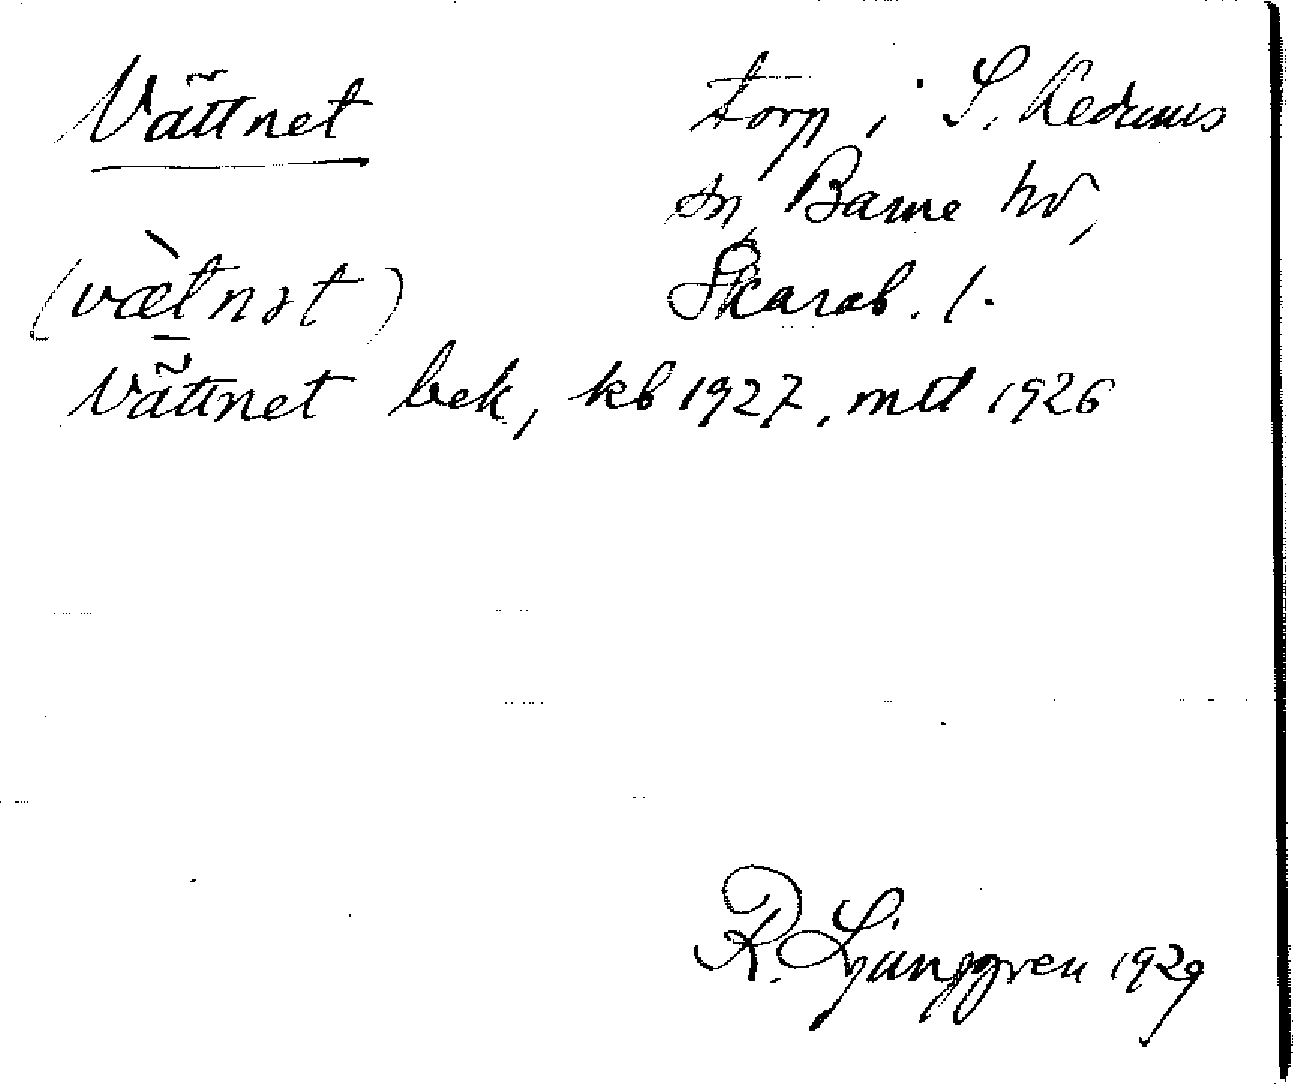 Vättnet torp i S. Kedums
sn, Barne hd,
(vætnət) Skarab. l.
Vättnet bek, kb 1927, mtl 1926
R. Ljunggren 1929